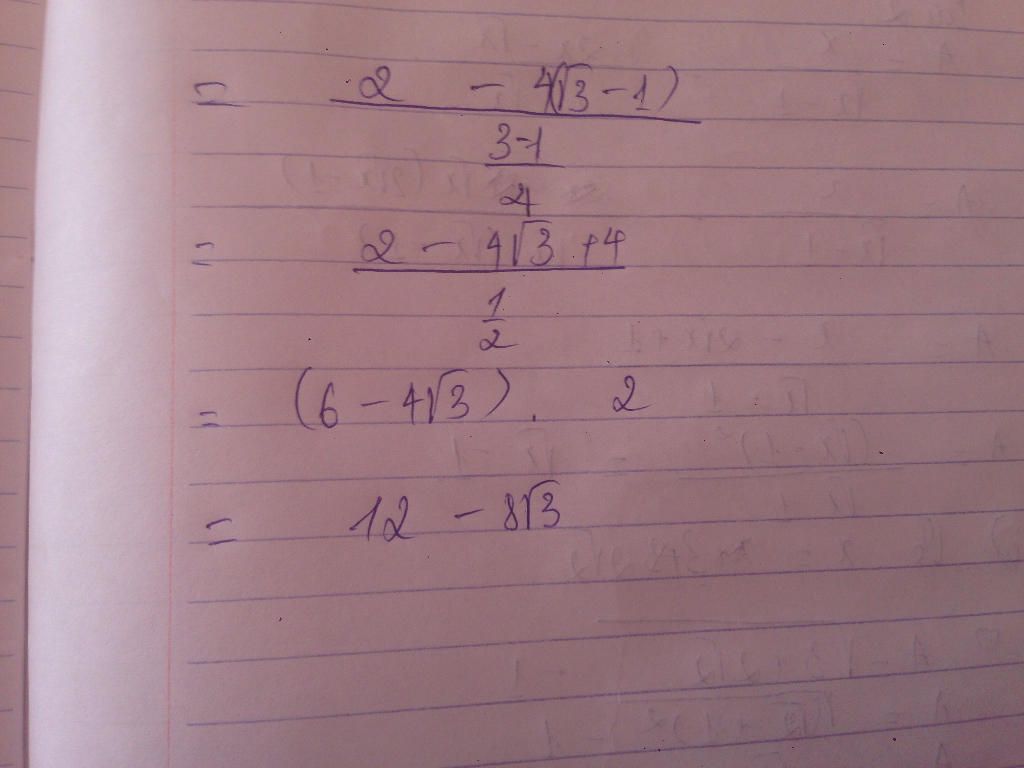 = 2 - 4(√3 - 1)
3-1
4
= 2 - 4√3 + 4
1
2
= (6 - 4√3) . 2
= 12 - 8√3